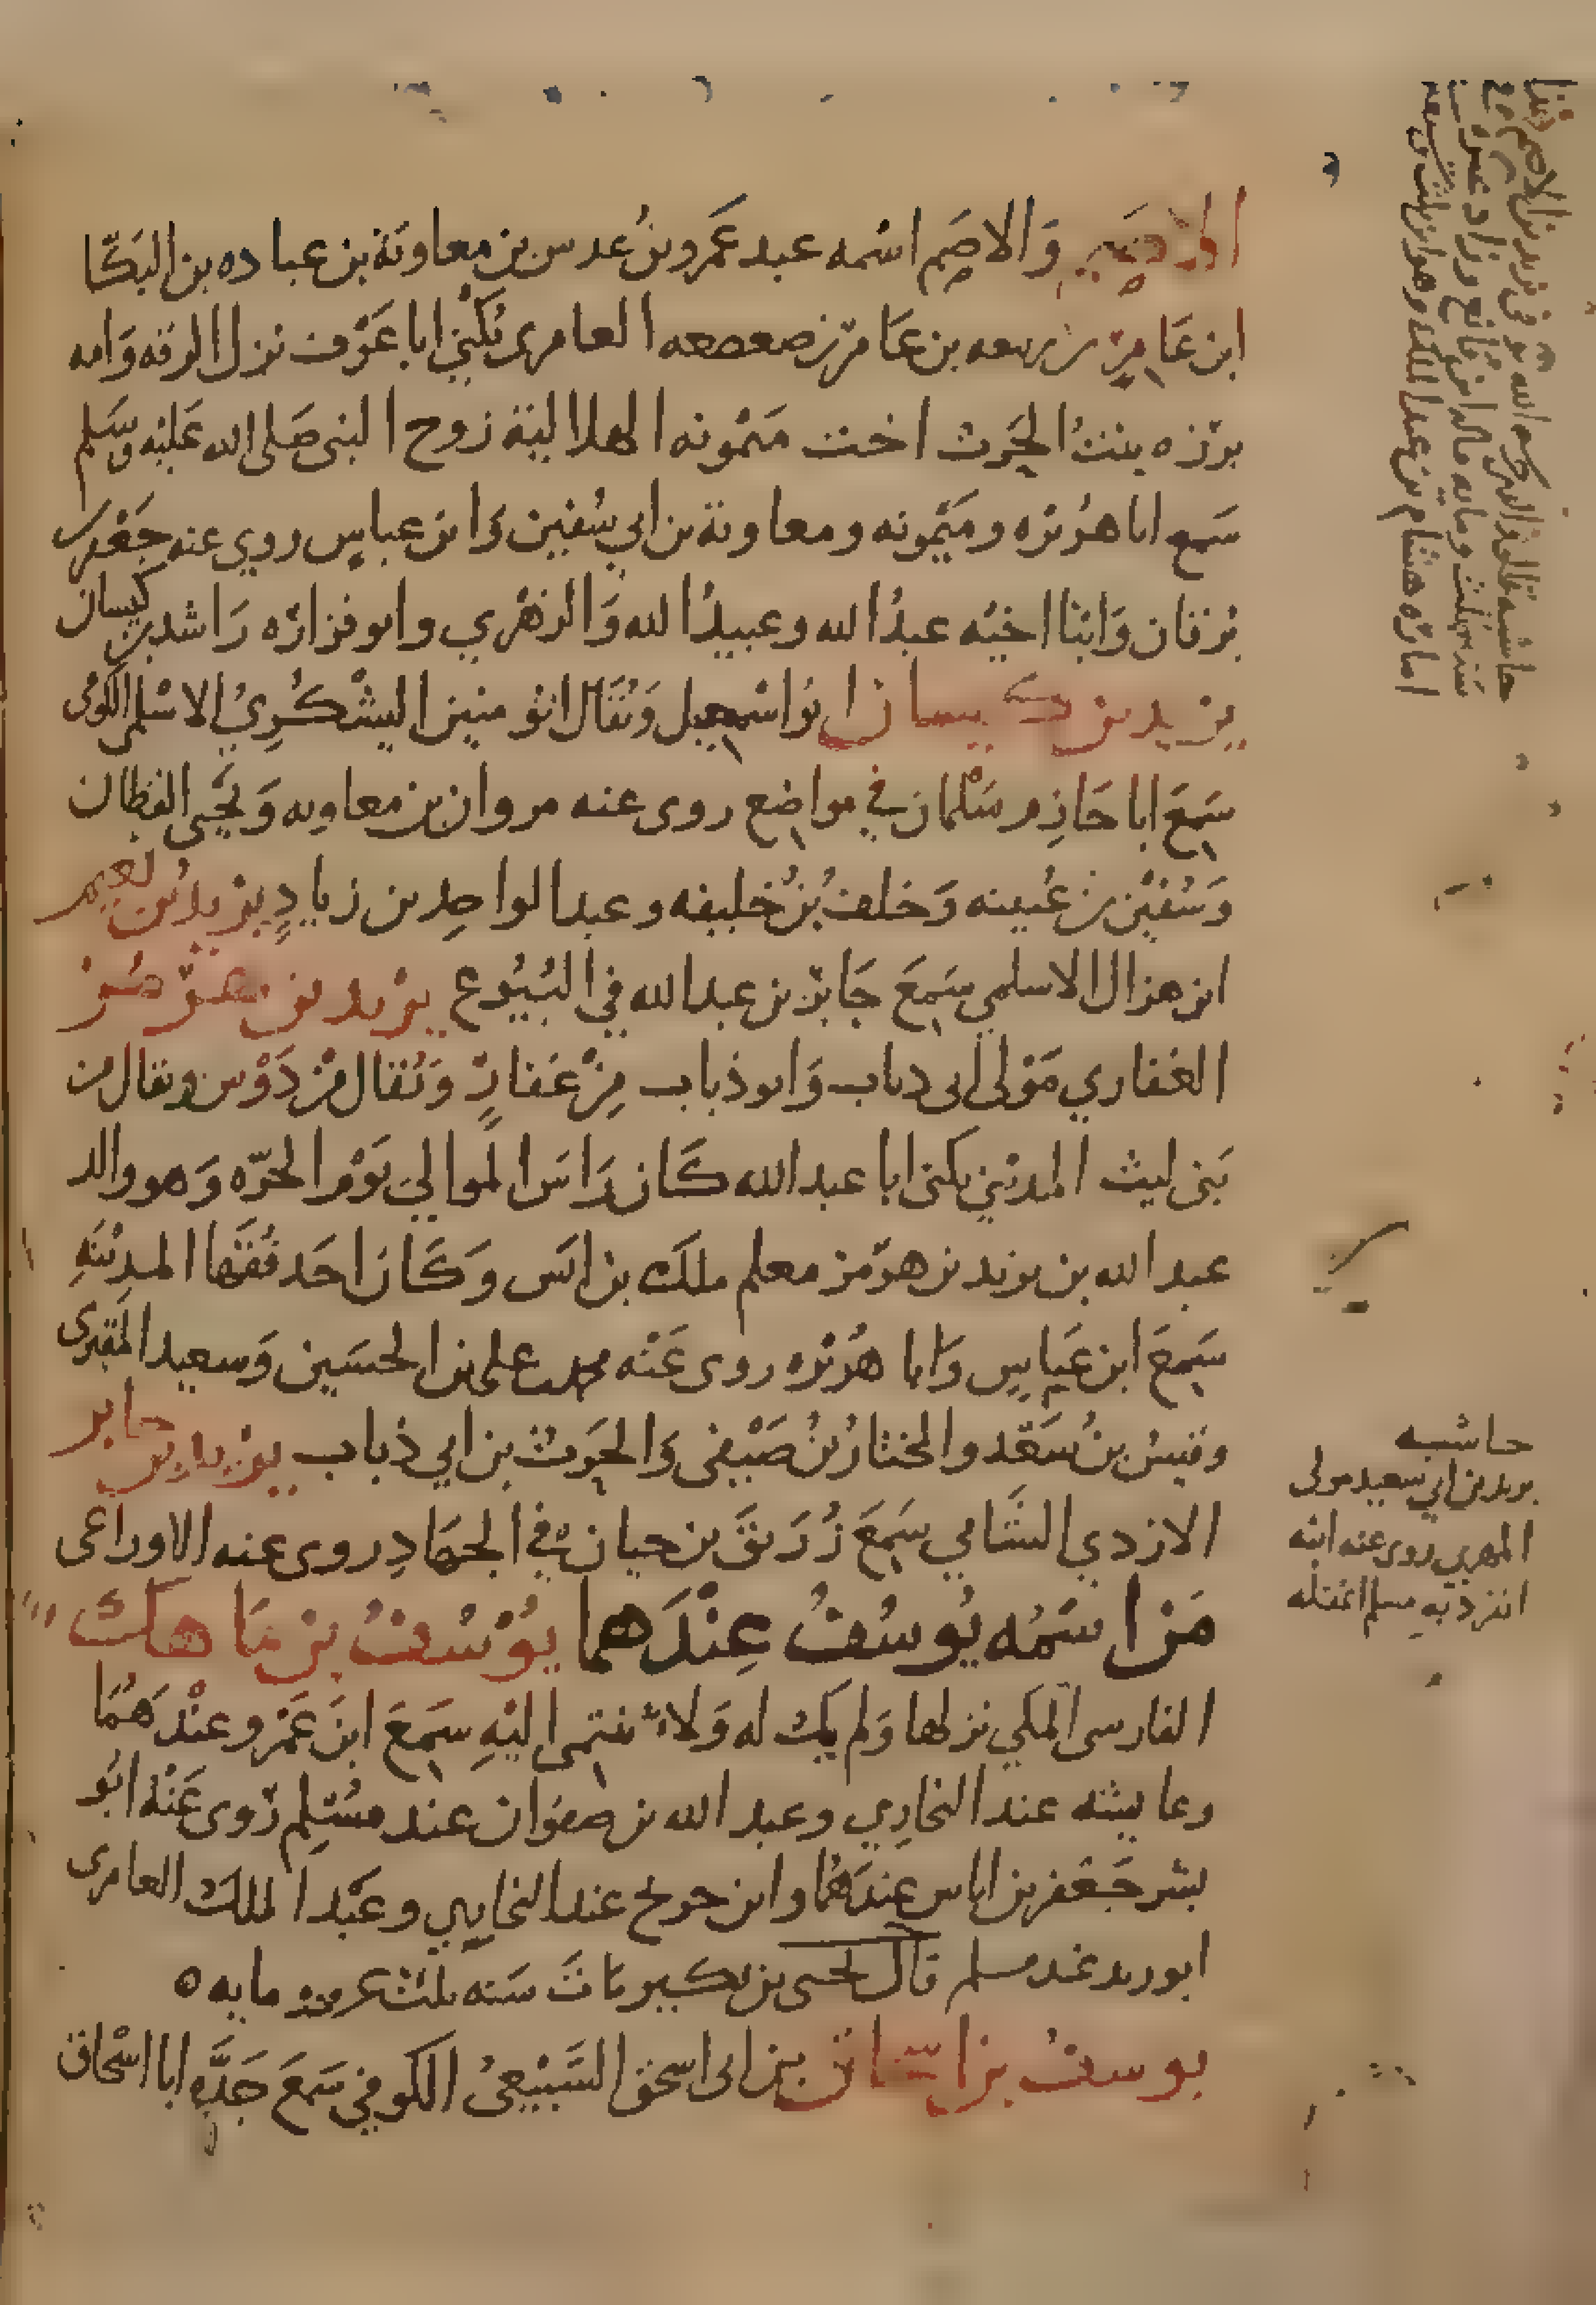 الاصم والاصم اسمه عبد عمرو بن عدس بن معاوية بن عباده بن البكا
ابن عامر بن ربيعه بن عامر بن صعصعه العامري يكنى ابا عوف نزل الرقه وامه
برزه بنت الحرث اخت ميمونه الهلالية زوج النبي صلى الله عليه وسلم
سمع ابا هريره وميمونه ومعاوية بن ابي سفين وابن عباس روي عنه جعفر بن
برقان وابنا اخيه عبد الله وعبيد الله والزهري وابو فزاره راشد بن كيسان
يزيد بن كيسان ابو اسمعيل ويقال ابو منين اليشكري الاسلمي الكوفي
سمع ابا حازم سلمان في مواضع روى عنه مروان بن معاويه ويحيى القطان
وسفين بن عيينه وخلف بن خليفه وعبد الواحد بن زياد يزيد بن نعيم
ابن هزال الاسلمي سمع جابر بن عبد الله في البيوع يزيد بن هرمز
الغفاري مولى ابي دباب وابو ذباب من غفار ويقال من دوس ويقال من
بني ليث المديني يكنى ابا عبد الله كان راس الموالي يوم الحره وهو والد
عبد الله بن يزيد بن هرمز معلم ملك بن انس وكان احد فقها المدينه
سمع ابن عباس وابا هريره روى عنه محمد بن علي بن الحسين وسعيد المقبري
وقيس بن سعد والمختار بن صيفي والحرث بن ابي ذباب يزيد بن جابر
الازدي الشامي سمع زريق بن حيان في الجهاد روى عنه الاوزاعي
من اسمه يوسف عندهما يوسف بن ماهك
الفارسي المكي نزلها ولم يك له ولاء ينتمي اليه سمع ابن عمرو عندهما
وعايشه عند البخاري وعبد الله بن صفوان عند مسلم روى عنه ابو
بشر جعفر بن اياس عندهما وابن جريج عند البخاري وعبد الملك العامري
ابو زيد عند مسلم قال يحيى بن بكير مات سنه ثلث عشره ومايه ه
يوسف بن اسحاق بن ابي اسحق السبيعي الكوفي سمع جده ابا اسحاق
حاشيه
يزيد بن ابي سعيد مولى
المهري روى عنه ابنه
انفرد به مسلم اغفله
حاشيه
سنه ثلث ومايه
اماره هشام بن عبد الملك